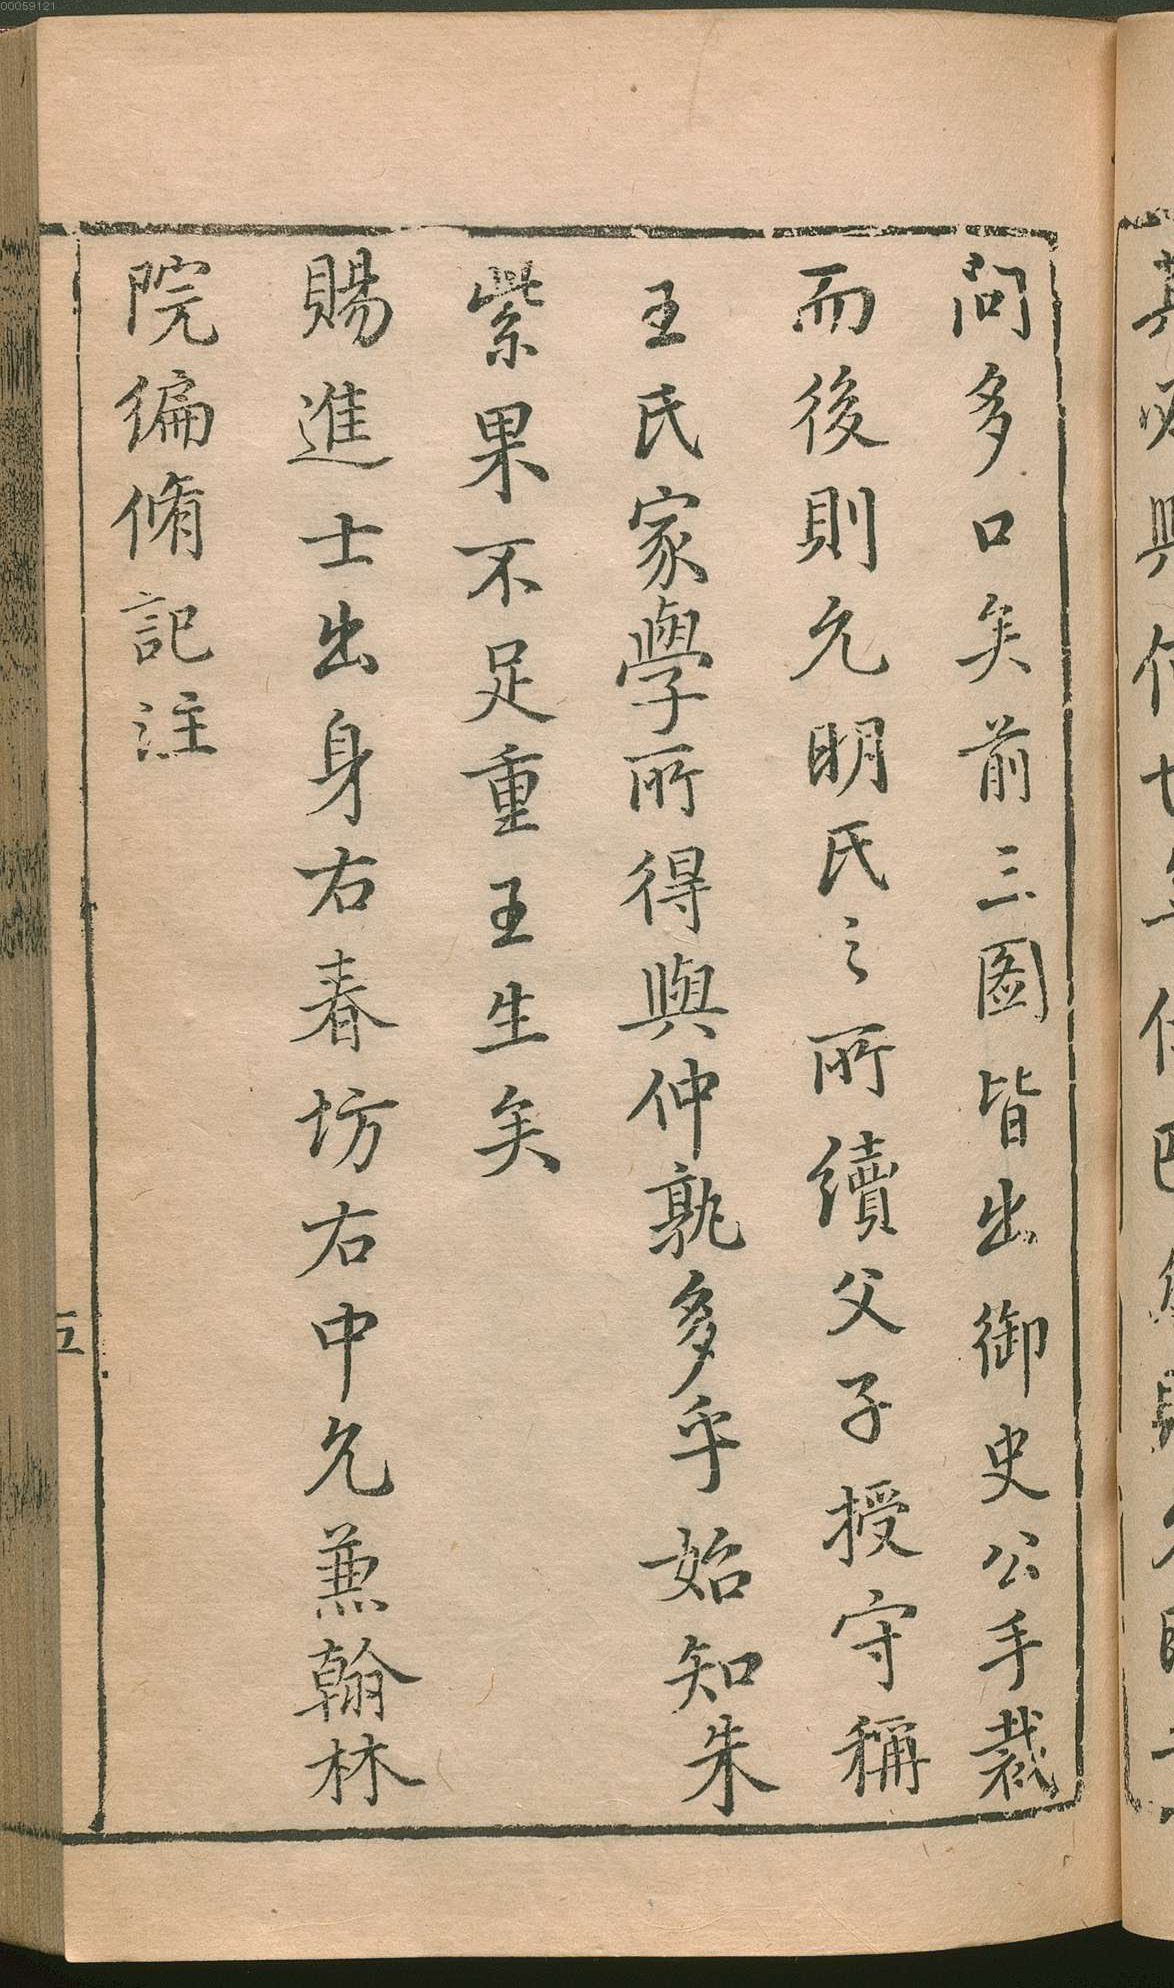 問多口矣前三圖皆出御史公手裁
而後則允明氏之所續父子授守稱
王氏家學所得與仲孰多乎始知朱
紫果不足重王生矣
賜進士出身右春坊右中允兼翰林
院編脩記注
五
00059121